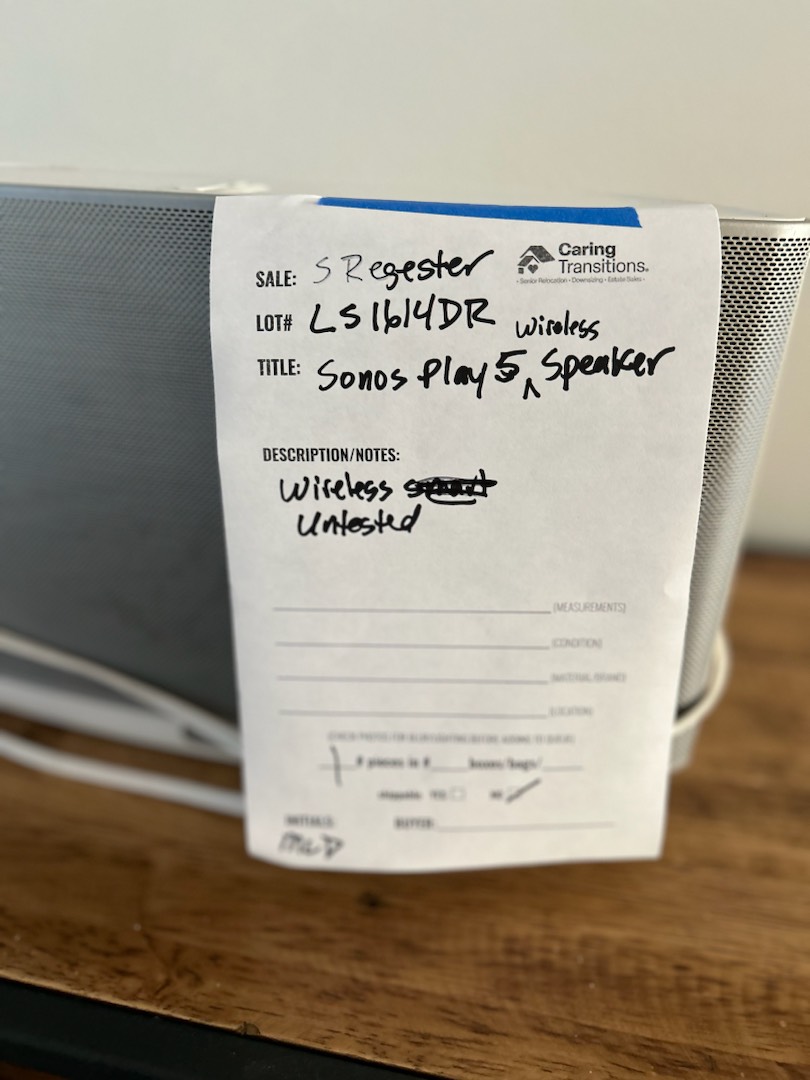 Caring
Transitions.
• Senior Relocation • Downsizing • Estate Sales •
SALE: S Regester
LOT# LS1614DR
wireless
TITLE: Sonos Play 5 ^ Speaker
DESCRIPTION/NOTES:
Wireless
Untested
(MEASUREMENTS)
(CONDITION)
(MATERIAL/BRAND)
(LOCATION)
1 # pieces in # boxes/bags/
shippable YES NO
INITIALS: BUYER: